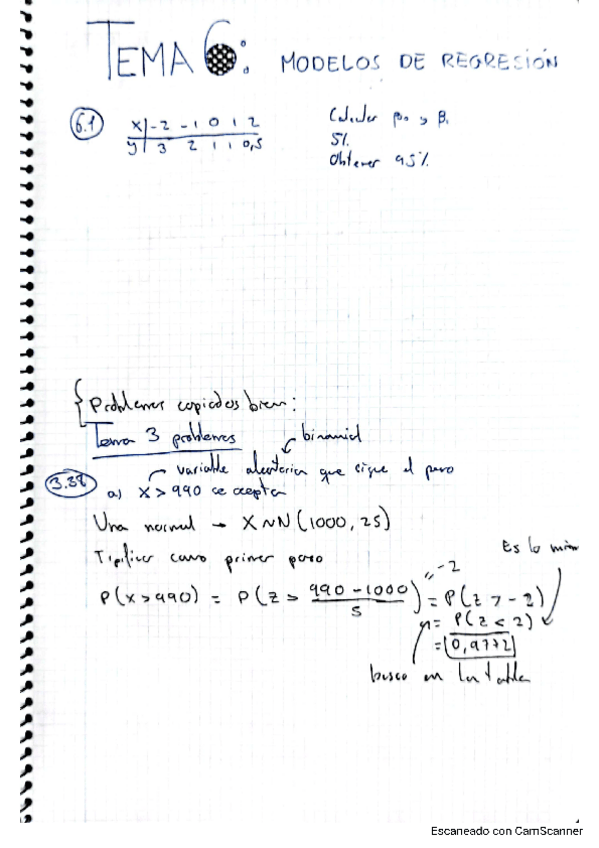 TEMA 6: MODELOS DE REGRESIÓN
6.1 x -2 -1 0 1 2 Calcular β₀ y β₁
y 3 2 1 1 0,5 5%
Obtener 95%
{Problemas copiados bien:
Tema 3 problemas binomial
3.38 variable aleatoria que sigue el peso
a) X > 990 se acepta
Una normal → X ~ N (1000, 25)
Tipificar como primer paso Es lo mismo
P(X > 990) = P(Z > (990 - 1000)/5) = P(Z > -2) "-2
= P(Z < 2)
= 0,9772
busco en la tabla
Escaneado con CamScanner